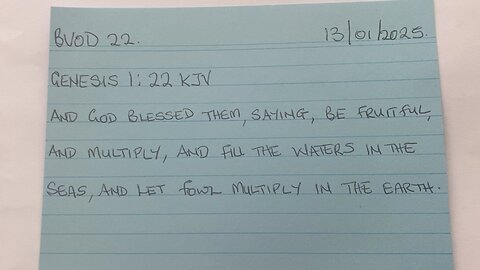 BVOD 22. 13/01/2025.
GENESIS 1:22 KJV
AND GOD BLESSED THEM, SAYING, BE FRUITFUL,
AND MULTIPLY, AND FILL THE WATERS IN THE
SEAS, AND LET FOWL MULTIPLY IN THE EARTH.